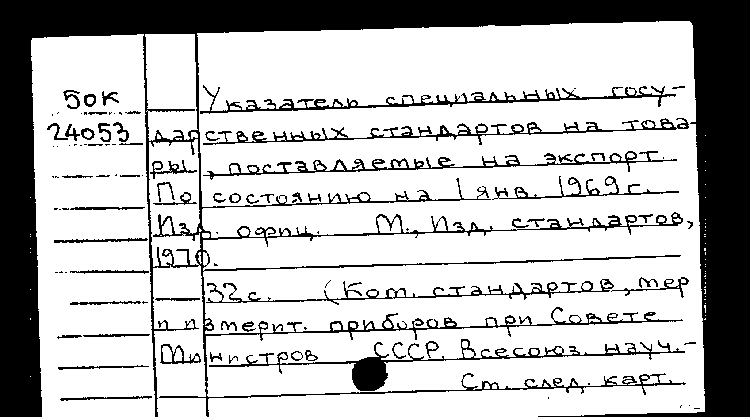 50К Указатель специальных госу-
24053 дарственных стандартов на това-
ры, поставляемые на экспорт.
По состоянию на 1 янв. 1969г.
Изд. офиц. М., Изд. стандартов,
1970.
32с. (Ком. стандартов, мер
и измерит. приборов при Совете
Министров СССР. Всесоюз. науч.-
См. след. карт.